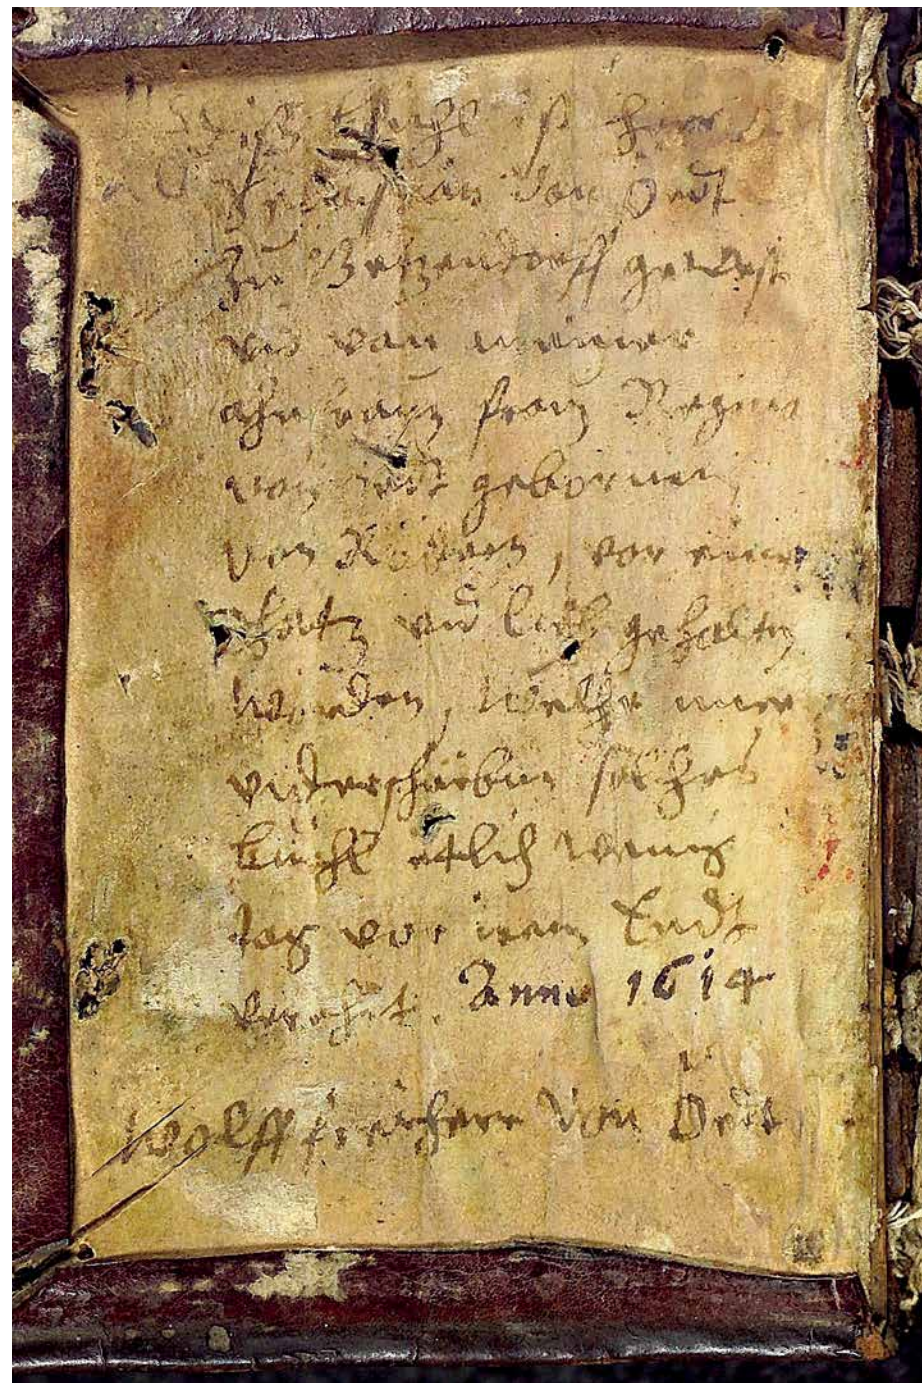 Diß Büchl ist herr
Sebastian von Oedt
zu Getzendorff gewest
vnd von meiner
ahnfrauen frauen Regina
von Oedt gebornen
von , vor einen
schatz vnd lieb gehalten
worden, welche mier
vnderschribne solches
büchl etlich wenig
tag vor irem Endt
verehrt. Anno 1614
Wolff freiherr von Oedt